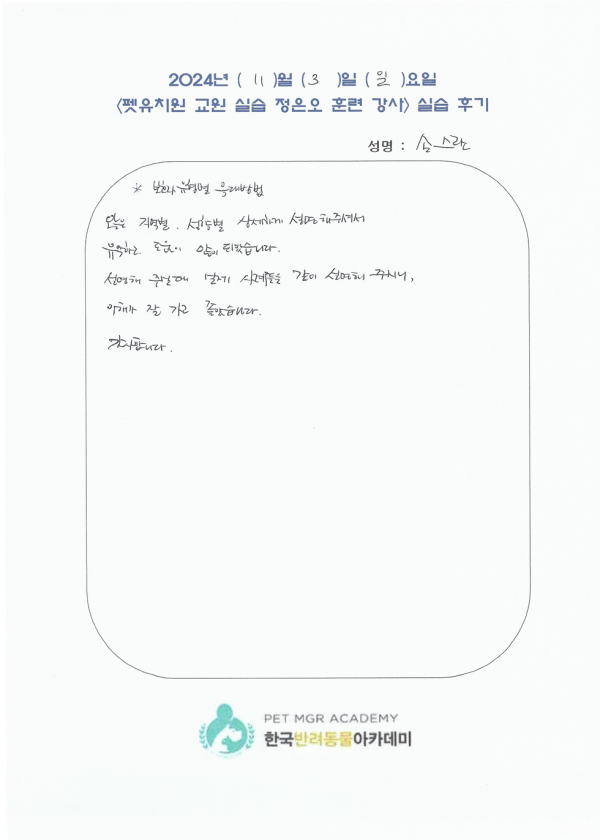 2024년 ( 11 )월 ( 3 )일 ( 일 )요일
<펫유치원 교원 실습 정은오 훈련 강사> 실습 후기
성명 :
* 보호자 유형별 응대방법
오늘은 지역별, 성향별 상세하게 설명해주셔서
유익하고 도움이 많이 되었습니다.
설명해 주실때 실제 사례들을 같이 설명해 주시니,
이해가 잘 가고 좋았습니다.
감사합니다.
PET MGR ACADEMY
한국반려동물아카데미